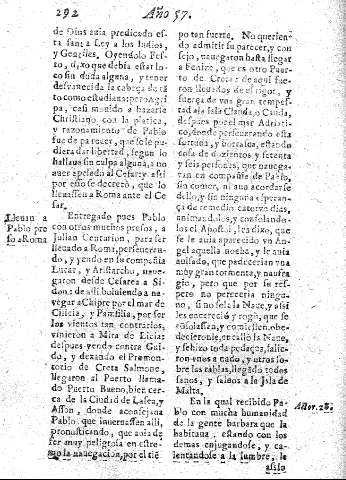 292 Año 57.
de Dios auia predicado es-
ta santa Ley a los Iudios,
y Gentiles, Oyendolo Fes-
to, dixo que debia estar lo-
co sin duda alguna, y tener
desvanecida la cabeça de tã
to como estudiaua: pero Agri
pa, casi mouido a hazerse
Christiano con la platica,
y razonamiento de Pablo
fue de parecer, que se le pu-
diera dar libertad, segun lo
hallaua sin culpa alguna, a no
auer apelado al Cesar: y assi
por esso se decretò, que lo
lleuassen a Roma ante el Ce
sar.
Lleuan a
Pablo pre
so a Roma
Entregado pues Pablo
con otros muchos presos, a
Iulian Centurion, para ser
lleuado a Roma, perseueran-
do, y yendo en su compañia
Lucas, y Aristarcho, naue-
garon desde Cesarea a Si-
don: de alli boluiendo a na-
vegar a Chipre por el mar de
Cilicia, y Pamfilia, por ser
los vientos tan contrarios,
vinieron a Mira de Licia:
despues yendo contra Gni-
do, y dexando el Promon-
torio de Creta Salmone,
llegaron al Puerto llama-
do Puerto Bueno, bien cer-
ca de la Ciudad de Lasea, y
Asson, donde aconsejaua
Pablo que inuernassen alli,
pronosticando, que auia de
ser muy peligrosa en estre-
mo la nauegacion, por el tiẽ
po tan fuerte. No querien-
do admitir su parecer, y con
sejo, nauegaron hasta llegar
a Fenize, que es otro Puer-
to de Creta: de aqui fue-
ron lleuados de el rigor, y
fuerça de vna gran tempes-
tad a la Isla Clauda, o Cauda,
despues por el mar Adriati-
co, donde perseuerando esta
fortuna, y borrasca, estando
cosa de docientas y setenta
y seis personas, que nauega-
van en compañia de Pablo,
sin comer, ni aun acordarse
dello, y sin ninguna esperan-
ça de remedio catorze dias,
animandolos, y consolando-
los el Apostol, les dixo, que
se le auia aparecido vn An-
gel aquella noche, y le auia
auisado, que padecerian vna
muy gran tormenta, y naufra
gio, pero que por su res-
peto no pereceria ningu-
no, si no sola la Naue, y assi
les encareciò y rogò, que se
consolassen, y comiessen, obe-
decieronle, encallò la Naue,
y se hizo toda pedaços, salie-
ron vnos a nado, y otros so-
bre las tablas, llegado todos
sanos, y saluos a la Isla de
Malta.
En la qual recibido Pa-
blo con mucha humanidad
de la gente barbara que la
habitaua, estando con los
demas enjugandose, y ca-
lentandose a la lumbre, le
Actor. 28.
assio